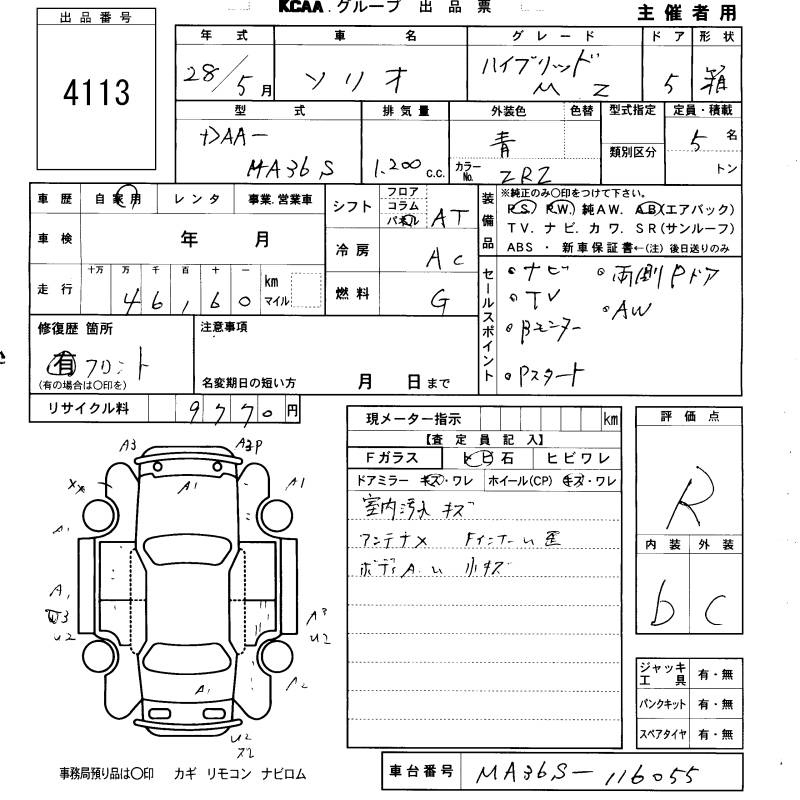 KCAA.グループ 出品票
主催者用
出品番号
4113
年式 車名 グレード ドア 形状
28/5月 ソリオ ハイブリッド MZ 5 箱
型式 排気量 外装色 色替 型式指定 定員・積載
DAA-
MA36S 1.200c.c. 青 5名
カラーNo. ZRZ 類別区分 トン
車歴 自家用 レンタ 事業.営業車
車検 年 月
走行 十万 万 千 百 十 一
46,160 km マイル
シフト フロア コラム パネル AT
冷房 AC
燃料 G
装備品
※純正のみ〇印をつけて下さい。
P S. P W. 純A W. A B(エアバック)
T V. ナ ビ. カ ワ. S R(サンルーフ)
A B S ・ 新車保証書←(注) 後日送りのみ
セールスポイント
・ナビ ・両側Pドア
・TV ・AW
・Bモニター
・Pスタート
修復歴 箇所
有 フロント
(有の場合は〇印を)
注意事項
名変期日の短い方 月 日まで
リサイクル料 9770円
現メーター指示 km
【査定員記入】
Fガラス トビ石 ヒビワレ
ドアミラー キズ・ワレ ホイール(CP) キズ・ワレ
室内汚れ キズ
アンテナ× Fインナーu歪
ボディA.u 小キズ
評価点
R
内装 外装
b C
ジャッキ工具 有・無
パンクキット 有・無
スペアタイヤ 有・無
A3 A3P
XX A1 A1
A1
A1
W3 U2
A3 U2
A1 A2
U2
X2
事務局預り品は〇印 カギ リモコン ナビロム
車台番号 MA36S-116055